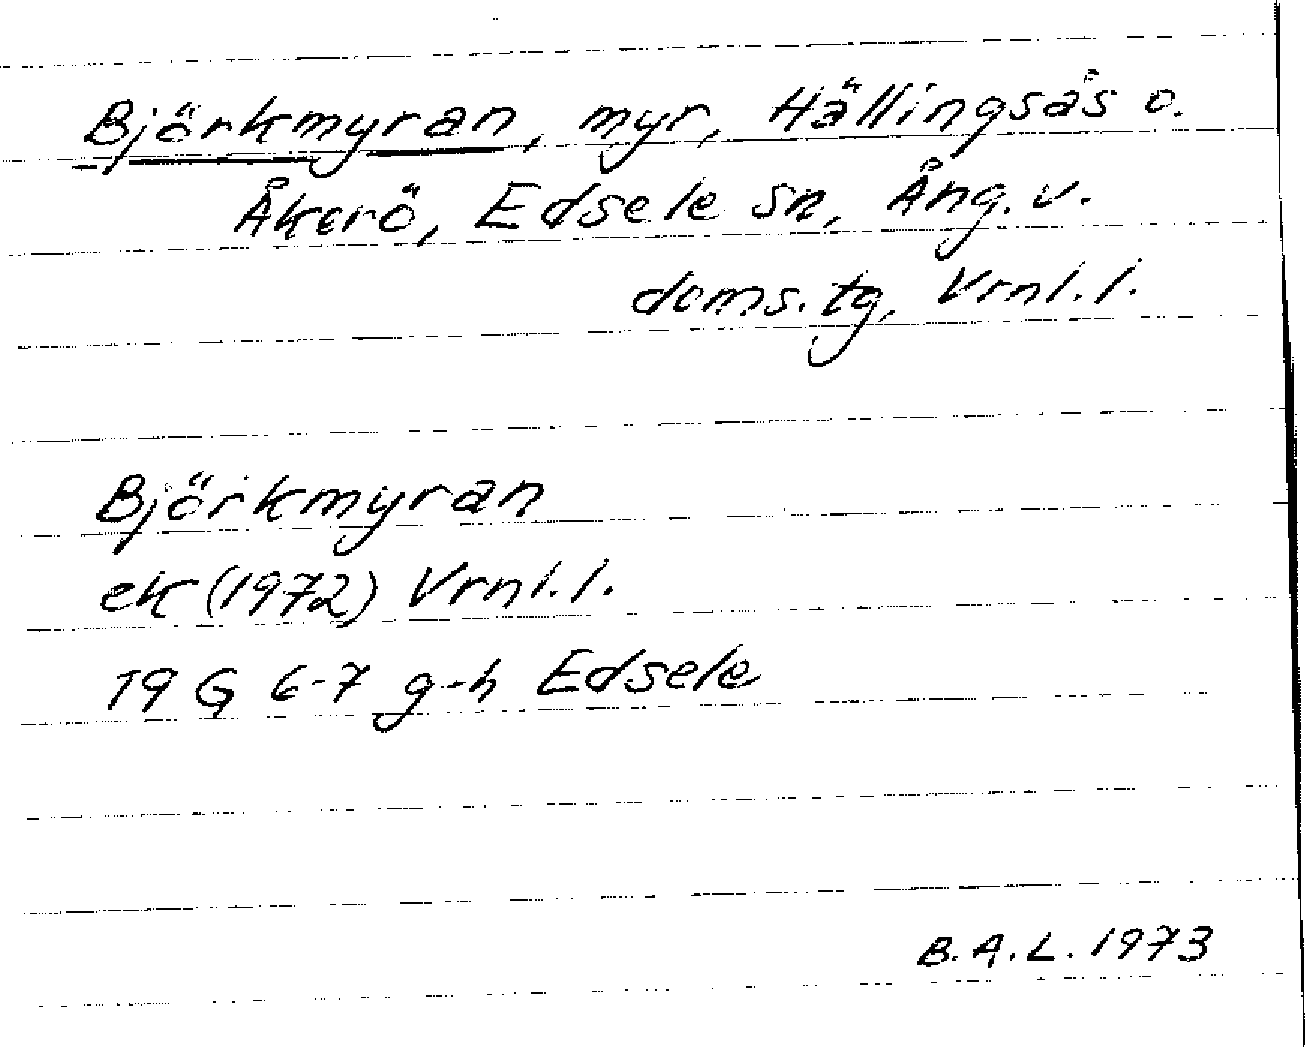 Björkmyran, myr, Hällingsås o.
Åkerö, Edsele sn, Ång. v.
doms. tg, Vrnl. l.
Björkmyran
ek (1972) Vrnl. l.
19 G 6-7 g-h Edsele
B. A. L. 1973